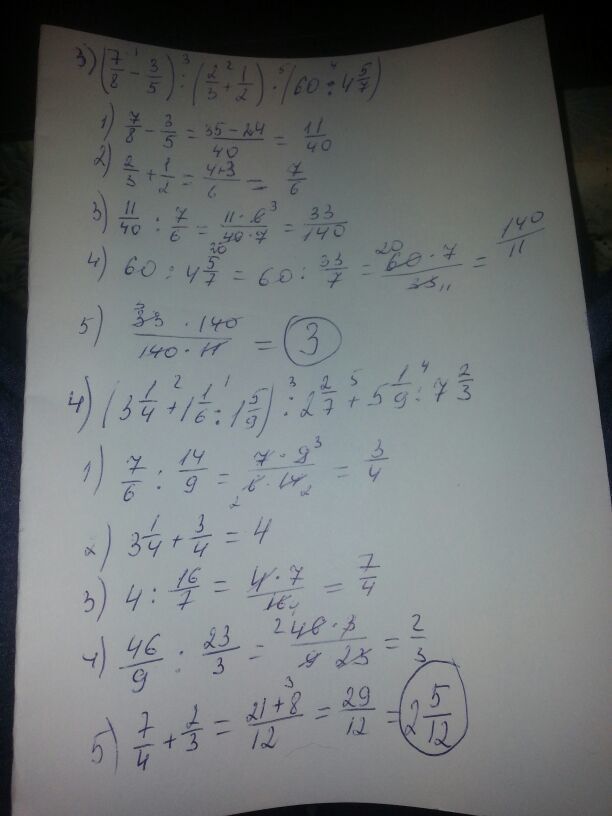 3) (7/8 - 3/5) : (2/3 + 1/2) · (60 : 4 5/7)
1) 7/8 - 3/5 = (35 - 24)/40 = 11/40
2) 2/3 + 1/2 = (4+3)/6 = 7/6
3) 11/40 : 7/6 = (11 · 6 3)/(40 · 7 20) = 33/140
4) 60 : 4 5/7 = 60 : 33/7 = (20 60 · 7)/(33 11) = 140/11
5) (3 33 · 140)/(140 · 11) = 3
4) (3 1/4 + 1 1/6 : 1 5/9) : 2 2/7 + 5 1/9 : 7 2/3
1) 7/6 : 14/9 = (7 · 9 3)/(2 6 · 14 2) = 3/4
2) 3 1/4 + 3/4 = 4
3) 4 : 16/7 = (4 · 7)/(16 4) = 7/4
4) 46/9 : 23/3 = (2 46 · 3)/(9 23 3) = 2/3
5) 7/4 + 2/3 = (21 + 8)/12 = 29/12 = 2 5/12